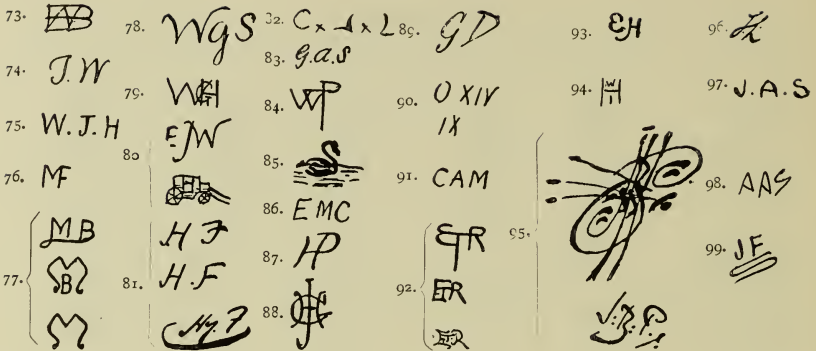 73. WB
74. J.W
75. W.J.H
76. MF
77. MB
MB
M
78. WgS
79. WGH
80 E.JW
81. H F
H.F
Hy. F
82. C x J x L
83. G.a.S
84. WP
85.
86. EMC
87. HP
88.
89. GD
90. O XIV
IX
91. CAM
92. ETR
ETR
ETR
93. EH
94. H
95.
96.
97. J.A.S
98. AAS
99. JF